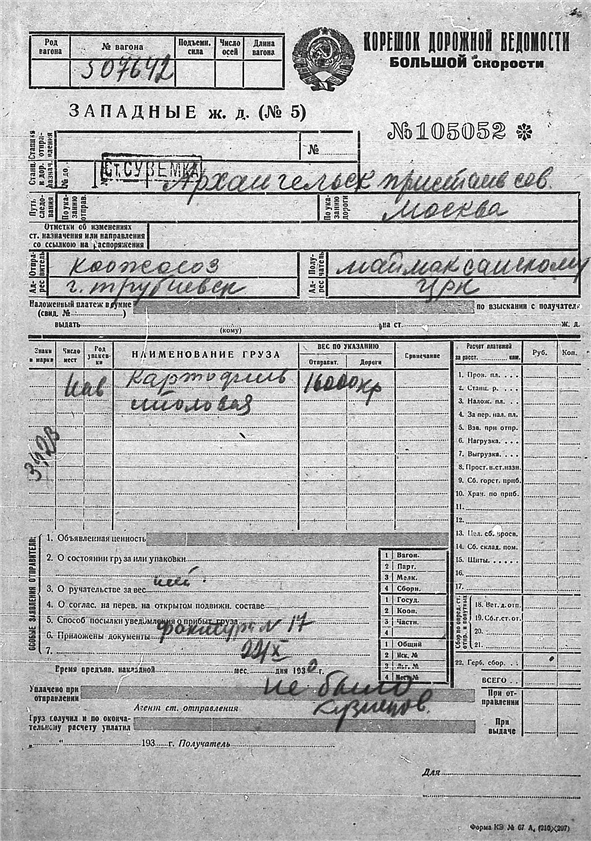 КОРЕШОК ДОРОЖНОЙ ВЕДОМОСТИ
БОЛЬШОЙ скорости
Род вагона
№ вагона
Подъемн. сила
Число осей
Длина вагона
507642
ЗАПАДНЫЕ ж. д. (№ 5)
№105052 *
Станция отправ.
№
Станц. и дор. назнач.
№ до.
Ст. СУЗЕМКА
Архангельск пристань сов.
Путь следования
По указанию отправ.
По указанию дороги
Москва
Отметки об изменениях
ст. назначения или направления
со ссылкою на распоряжения
Отправитель
Адрес
Коопсоюз
г. Трубчевск
Получатель
Адрес
Маймаксанскому
ЦРК
Наложенный платеж в сумме
по взысканий с получател-
(свид. № )
выдать
(кому)
на ст.
ж. д.
Знаки и марки
Число мест
Род упаковки
НАИМЕНОВАНИЕ ГРУЗА
ВЕС ПО УКАЗАНИЮ
Отправит.
Дороги
Примечание
Расчет платежей
за расст. км.
Руб.
Коп.
Нав
Картофель
столовая
16000 кр
3423
1. Пров. пл.
2. Станц. р.
3. Налож. пл.
4. За пер. нал. пл.
5. Взв. при отпр.
6. Нагрузка.
7. Выгрузка.
8. Прост. в ст. назн.
9. Сб. горст. приб.
10. Хран. по приб.
11.
12.
13. Цел. сб. просв.
14. Сб. склад. пом.
15. Щиты.
16.
17.
18. Вет. д. отп.
19. Сб. г. ст. от.
20.
21.
22. Герб. сбор.
ВСЕГО
При отправлении
При выдаче
ОСОБЫЕ ЗАЯВЛЕНИЯ ОТПРАВИТЕЛЯ:
1. Объявленная ценность
2. О состоянии груза или упаковки
3. О ручательстве за вес
4. О соглас. на перев. на открытом подвижн. составе
5. Способ посылки уведомления о прибыт. груза
6. Приложены документы фактура N 17
7. 22/X
1 Вагон.
2 Парт.
3 Мелк.
4 Сборн.
1 Госуд.
2 Кооп.
3 Частн.
4
1 Общий
2 Иск. №
3 Льг. №
4 Местн №
Время предъяв. накладной мес. дня 1932 г.
Уплачено при отправлении
не было
Агент ст. отправления
Кузнецов.
Груз получил и по окончательному расчету уплатил
„ “ 193 г. Получатель
Для
Форма КЭ № 67 А, (210×297)